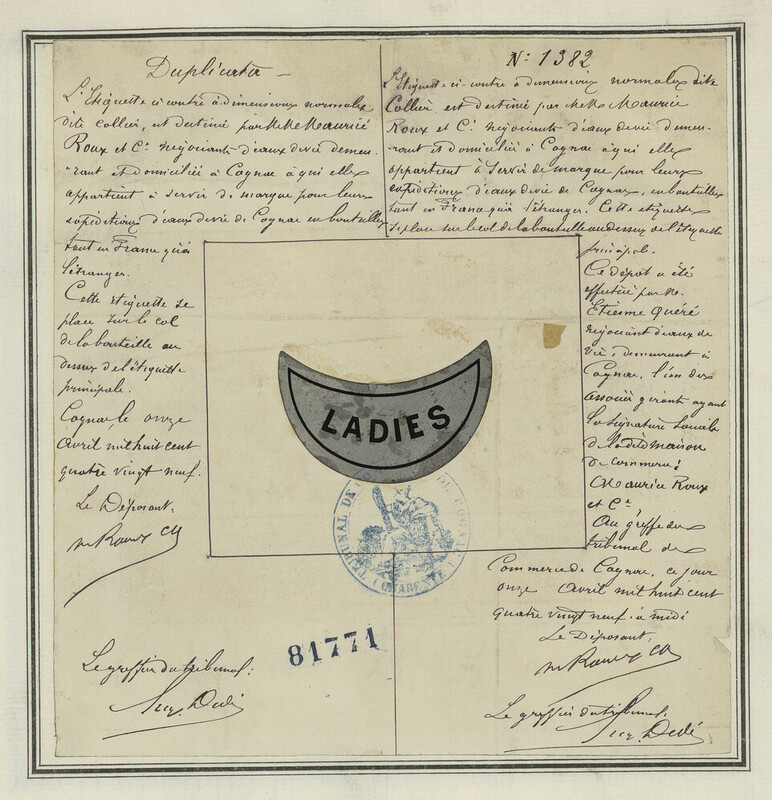 Duplicata
L'Etiquette ci contre à dimensions normales
dite collier, est destiné par MM Maurice
Roux et Cie négociants d'eaux devie demeu-
-rant et domiciliés à Cognac à qui elle
appartient à servir de marque pour leurs
expéditions d'eaux devie de Cognac en bouteilles
tant en France qu'à
l'étranger.
Cette etiquette se
place sur le col
de la bouteille au
dessus de l'étiquette
principale.
Cognac le onze
Avril mil huit cent
quatre vingt neuf.
Le Déposant,
M Roux & Cie
Le greffier du tribunal:
Dedé
No 1382
L'Etiquette ci-contre à dimensions normales dite
Collier est destiné par MM Maurice
Roux et Cie négociants d'eaux devie demeu-
rant et domiciliés à Cognac à qui elle
appartient à servir de marque pour leurs
expéditions d'eaux devie de Cognac, en bouteilles
tant en France qu'à l'étranger. Cette etiquette
se place sur le col de la bouteille au dessus de l'étiquette
principale.
Ce dépôt a été
effectué par M.
Etienne Quéré
négociant d'eaux de
vie, demeurant à
Cognac, l'un des
associés gerants ayant
la signature sociale
de la dite maison
de commerce
Maurice Roux
et Cie
Au greffe du
tribunal de
Commerce de Cognac, ce jour
onze Avril mil huit cent
quatre vingt neuf à midi
Le Déposant:
M Roux & Cie
Le greffier du tribunal,
Dedé
LADIES
TRIBUNAL DE COMMERCE DE COGNAC
(CHARENTE)
81771